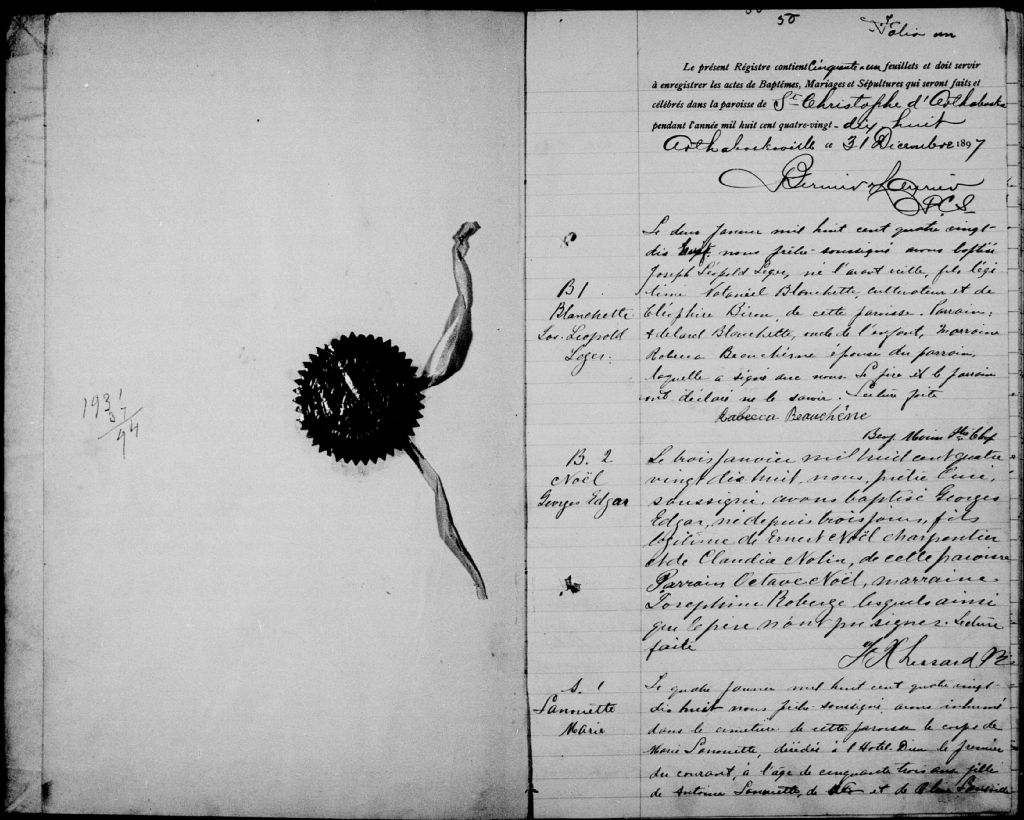 50
Folio un
Le présent Régistre contient Cinquante-un feuillets et doit servir
à enregistrer les actes de Baptêmes, Mariages et Sépultures qui seront faits et
célébrés dans la paroisse de St Christophe d'Arthabaska
pendant l'année mil huit cent quatre-vingt-dix huit
Arthabaskaville ce 31 Décembre 1897
P.C.S.
B1.
Blanchette
Jos. Léopold
Léger.
Le deux Janvier mil huit cent quatre vingt-
dix huit nous prêtre soussigné avons baptisé
Joseph Léopold Léger, né l'avant veille, fils légi
time Blanchette, cultivateur et de
Cléophire Biron, de cette paroisse. Parrain,
Adélard Blanchette, oncle de l'enfant, Marraine
Rebecca Beauchêne épouse du parrain,
laquelle a signé avec nous. Le père et le parrain
ont déclaré ne le savoir. Lecture faite
Rabecca Beauchêne
B. 2
Noël
Georges Edgar
Le trois janvier mil huit cent quatre
vingt dix huit, nous, prêtre Curé,
soussigné, avons baptisé Georges
Edgar, né depuis trois jours, fils
légitime de Ernest Noël charpentier
et de Claudia Nolin, de cette paroisse
Parrain Octave Noël, marraine
Josephine Roberge lesquels ainsi
que le père n'ont pu signer. Lecture
faite
S. 1
Lanouette
Marie
Le quatre Janvier mil huit cent quatre vingt-
dix huit nous prêtre soussigné avons inhumé
dans le cimetière de cette paroisse le corps de
Marie Lanouette, décédée à l'Hôtel Dieu le premier
du courant, à l'âge de cinquante trois ans fille
de Antoine Lanouette, de et de
193 1
37
94